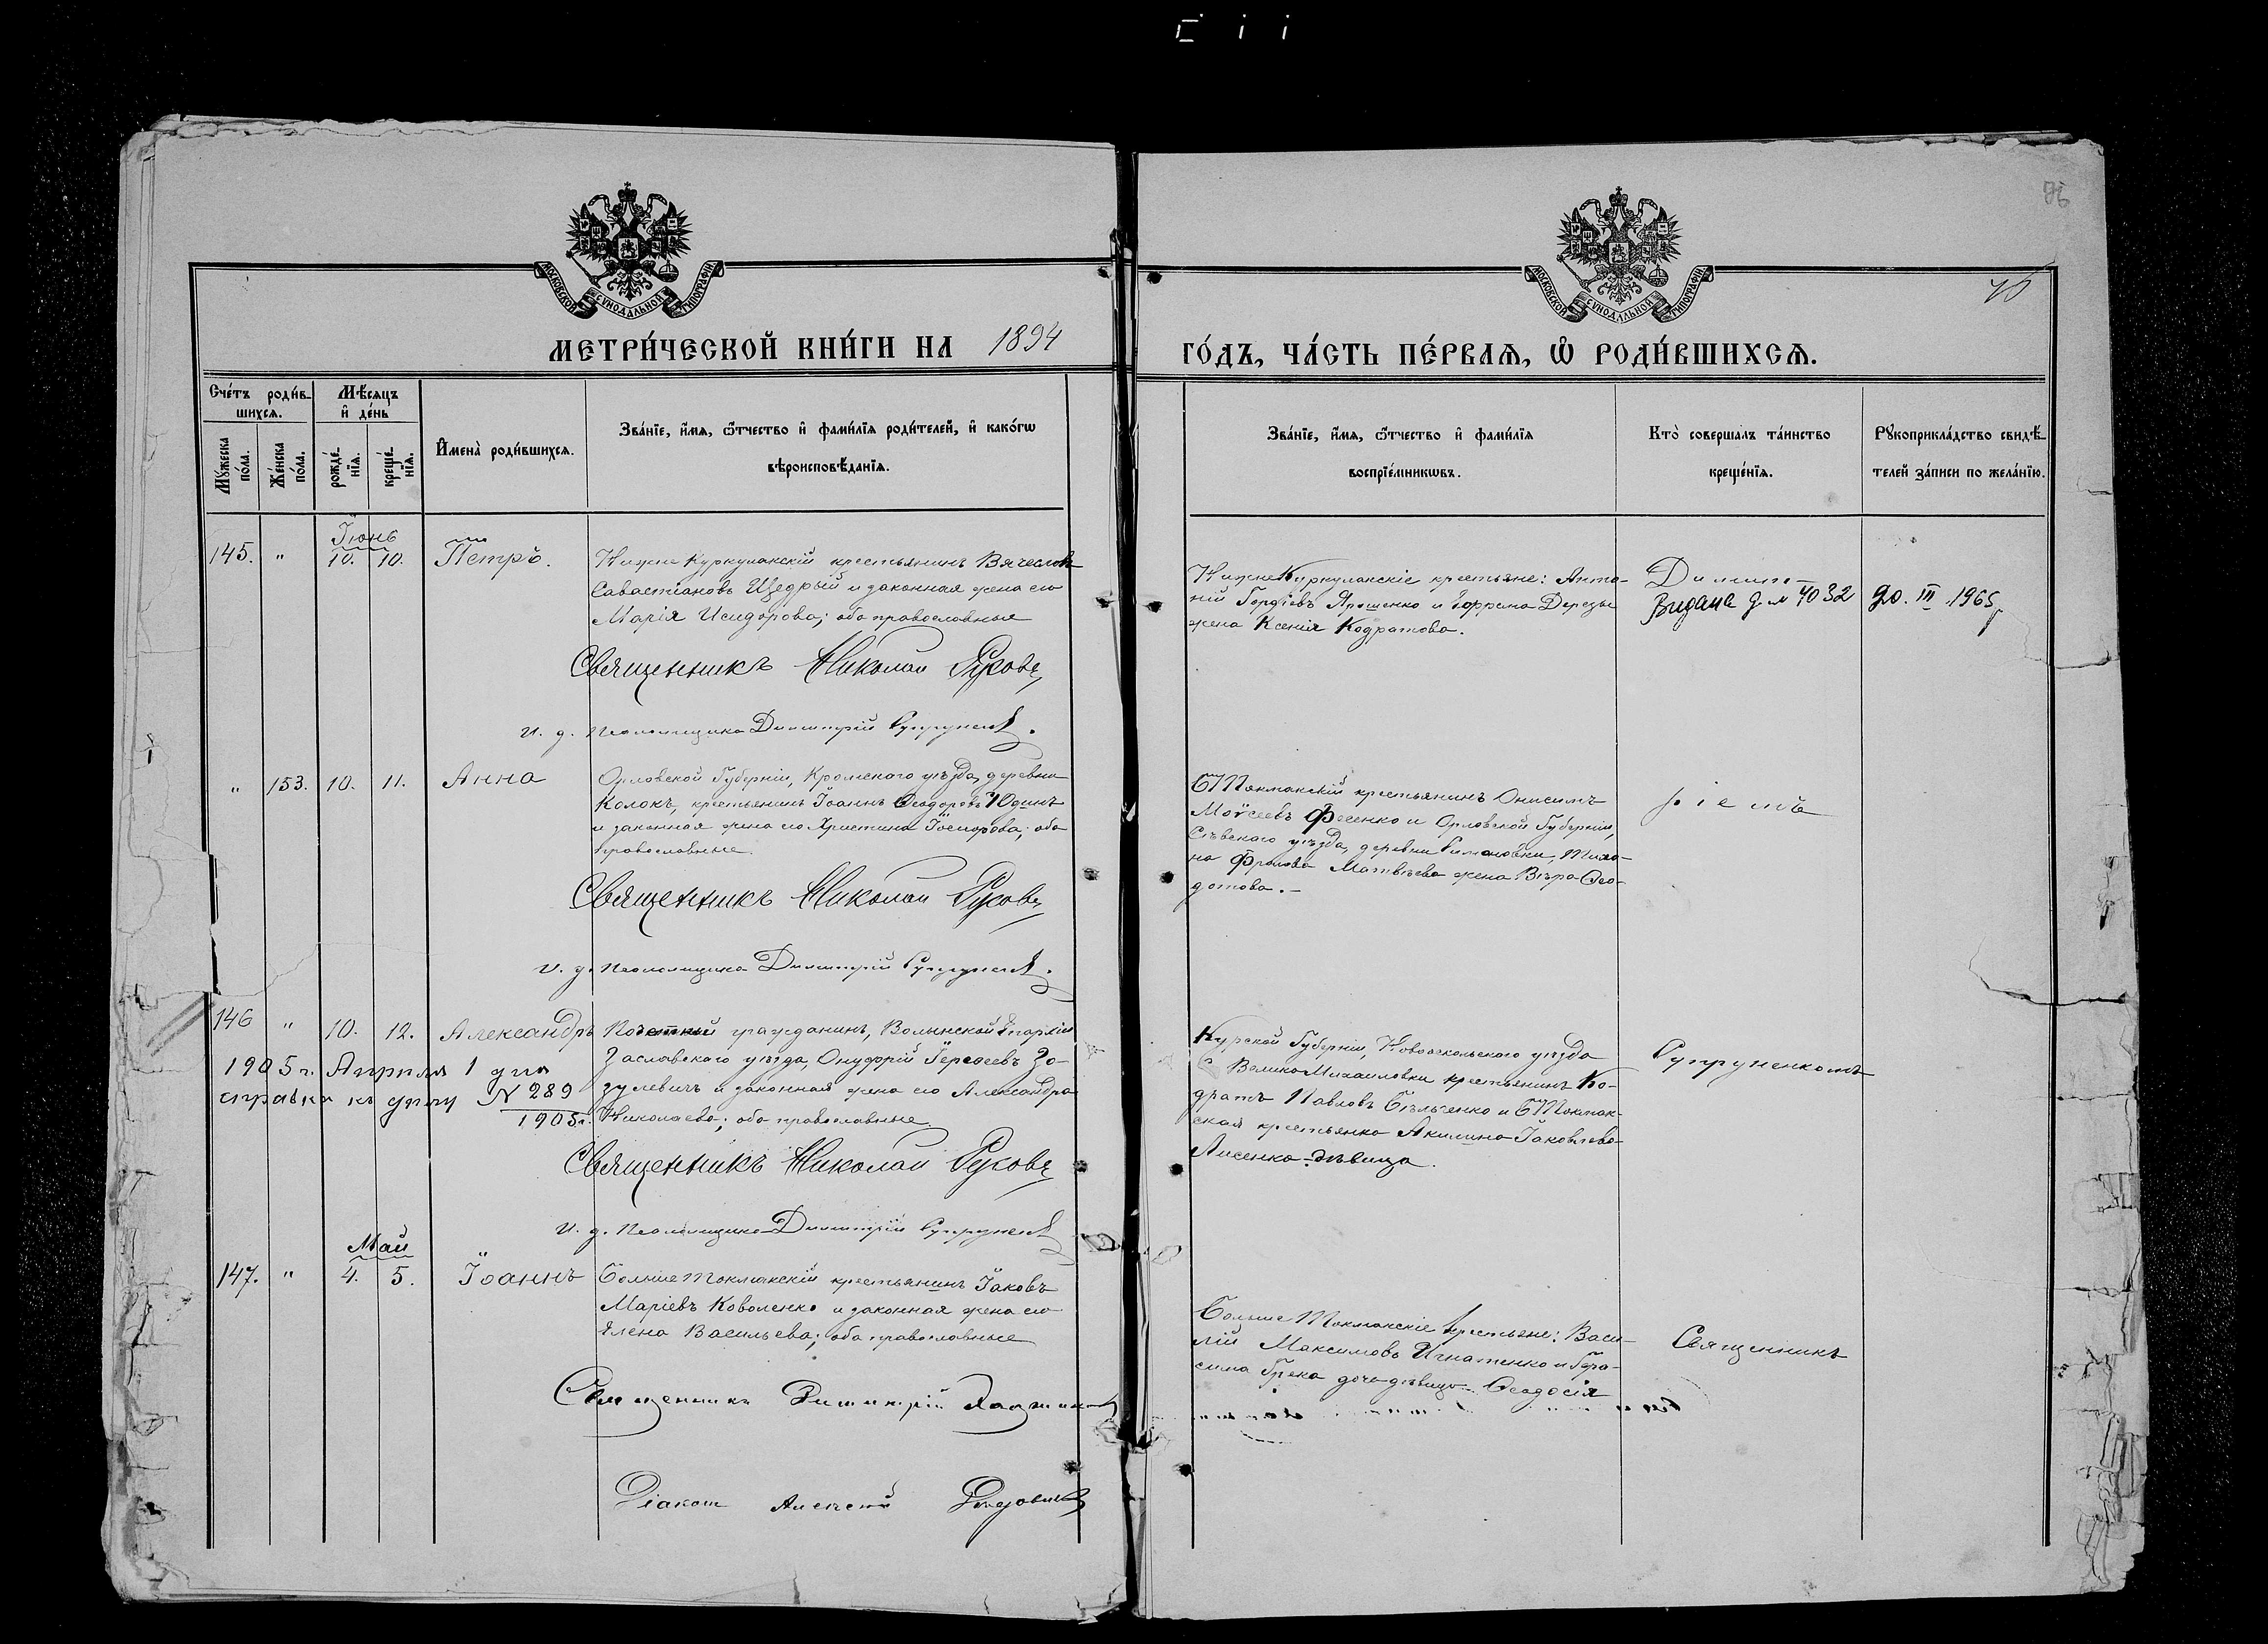 76
МОСКОВСКОЙ СѴНОДАЛЬНОЙ ТИПОГРАФІИ
МОСКОВСКОЙ СѴНОДАЛЬНОЙ ТИПОГРАФІИ
МЕТРИ́ЧЕСКОЙ КНИ́ГИ НА 1894
ГО́ДЪ, ЧА́СТЬ ПЕ́РВАѦ, Ѡ РОДИ́ВШИХСѦ.
Сче́тъ роди́в-
шихсѧ.
Мꙋ́жеска по́ла.
Же́нска по́ла.
Мѣ́сѧцъ
и҆ де́нь
рожде́нїѧ.
креще́нїѧ.
И҆мена̀ роди́вшихсѧ.
Зва́нїе, и҆́мѧ, ѻ҆́тчество и҆ фами́лїѧ роди́телей, и҆ како́гѡ
вѣроисповѣ́данїѧ.
Зва́нїе, и҆́мѧ, ѻ҆́тчество и҆ фами́лїѧ
воспрїе́мникѡвъ.
Кто̀ соверша́лъ та́инство
креще́нїѧ.
Рꙋкоприкла́дство свидѣ́-
телей за́писи по жела́нїю.
Іюнь
145. " 10. 10. Петръ.
Нижне Куркулакскій крестьянинъ Вячеславъ
Савастіановъ Щедрый и законная жена его
Марія Исидорова; оба православные
Священникъ Николай Русовъ
И. д. Псаломщика Димитрій Супруненко.
НижнеКуркулакскіе крестьяне: Анто-
ній Гордіевъ Ярошенко и
жена Ксенія Кодратова.
Димит-
Видана д. № 4032 20. III 1965
" 153. 10. 11. Анна
Орловской Губерніи, Кромскаго уѣзда, деревни
Колокъ, крестьянинъ Іоаннъ Ѳеодоровъ Юдинъ
и законная жена его Христина; оба
православные.
Священникъ Николай Русовъ
И. д. Псаломщика Димитрій Супруненко.
БТокмакскій крестьянинъ Онисимъ
Моѵсеевъ Фесенко и Орловской Губерніи,
Сѣвскаго уѣзда, деревни
Фролова Матвѣева жена Вѣра Ѳео-
дотова.-
ріемъ
146 " 10. 12. Александръ
1905 г. Апрѣля 1 дня
справка къ дѣлу № 289
1905 г.
Почетный гражданинъ, Волынской Епархіи
Заславскаго уѣзда, Онуфрій Зо-
зулевичъ и законная жена его Александра
Николаева; оба православные.
Священникъ Николай Русовъ
И. д. Псаломщика Димитрій Супруненко
Курской Губерніи, Новооскольскаго уѣзда
С. ВеликоМихаиловки крестьянинъ Ко-
дратъ Павловъ Бѣльченко и БТокмак-
ская крестьянка Акилина Іаковлева
Лисенко-дѣвица.
Супруненкомъ
Май
147. " 4. 5. Іоаннъ
Больше Токмакскій крестьянинъ Іаковъ
Маріевъ Коваленко и законная жена его
Елена Васильева; оба православные
Священникъ Димитрій
Діаконъ Алексей
Больше Токмакскіе крестьяне: Васи-
лій Максимовъ Игнатенко и Гера-
сима Грека дочь дѣвица Ѳеодосія
Священникъ